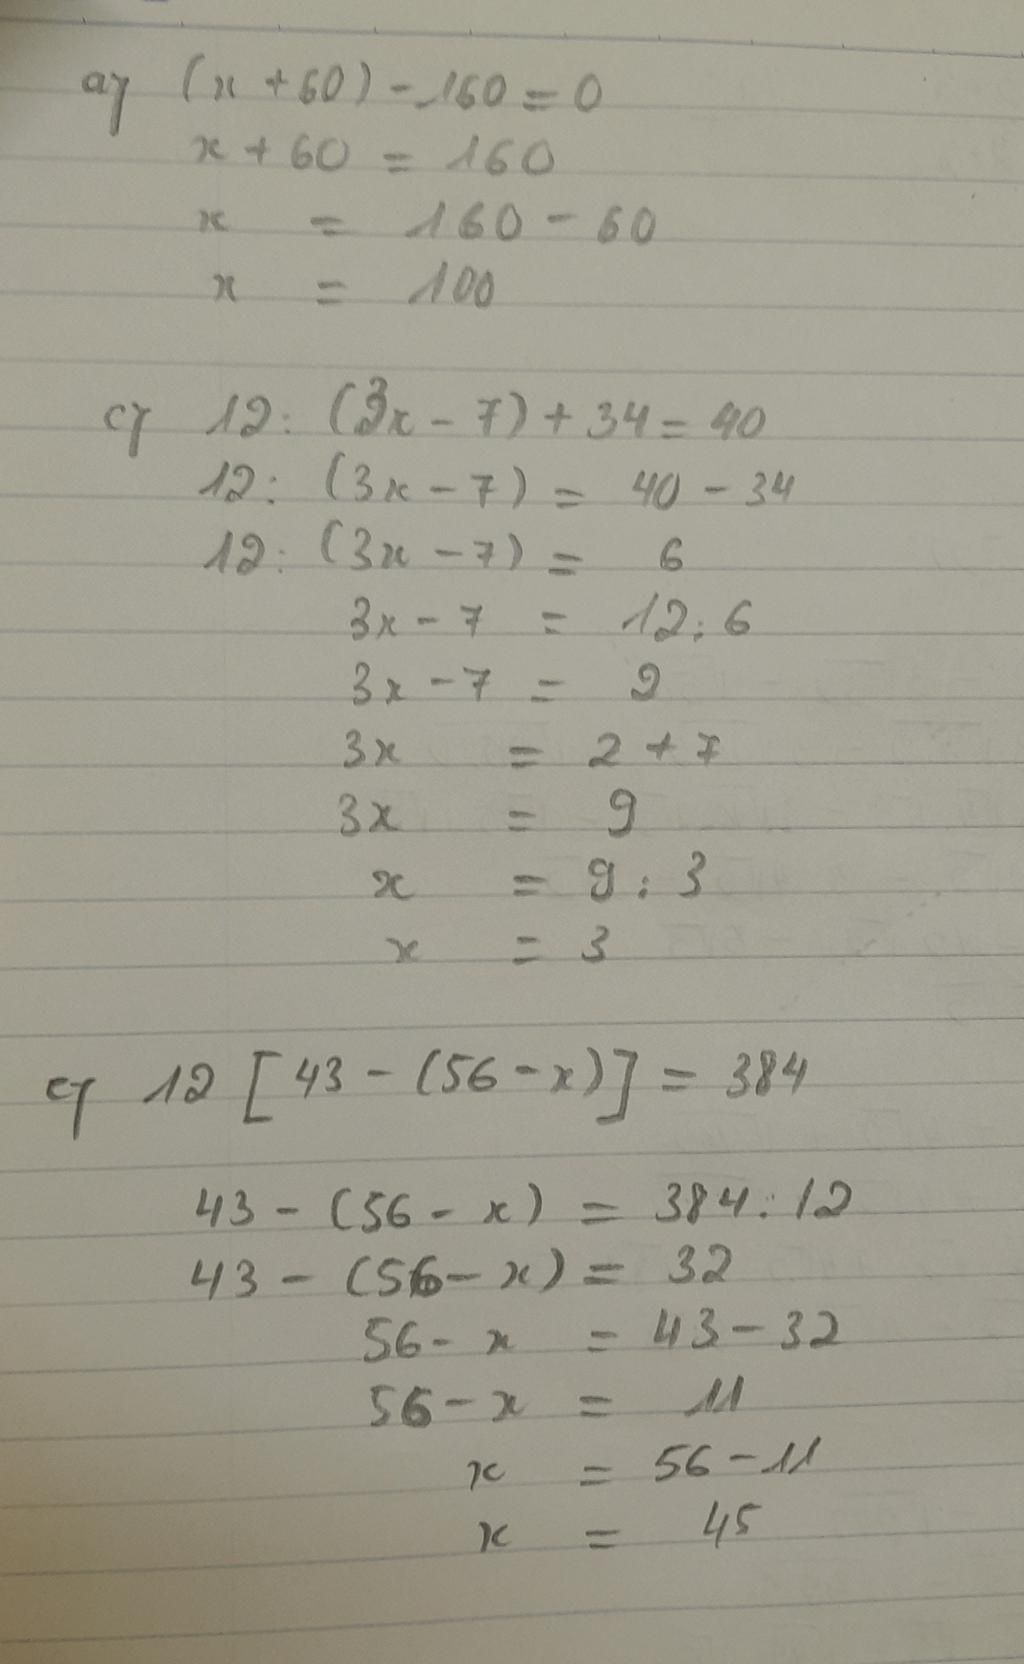 a) (x + 60) - 160 = 0
x + 60 = 160
x = 160 - 60
x = 100
c) 12 : (3x - 7) + 34 = 40
12 : (3x - 7) = 40 - 34
12 : (3x - 7) = 6
3x - 7 = 12 : 6
3x - 7 = 2
3x = 2 + 7
3x = 9
x = 9 : 3
x = 3
c) 12 [43 - (56 - x)] = 384
43 - (56 - x) = 384 : 12
43 - (56 - x) = 32
56 - x = 43 - 32
56 - x = 11
x = 56 - 11
x = 45